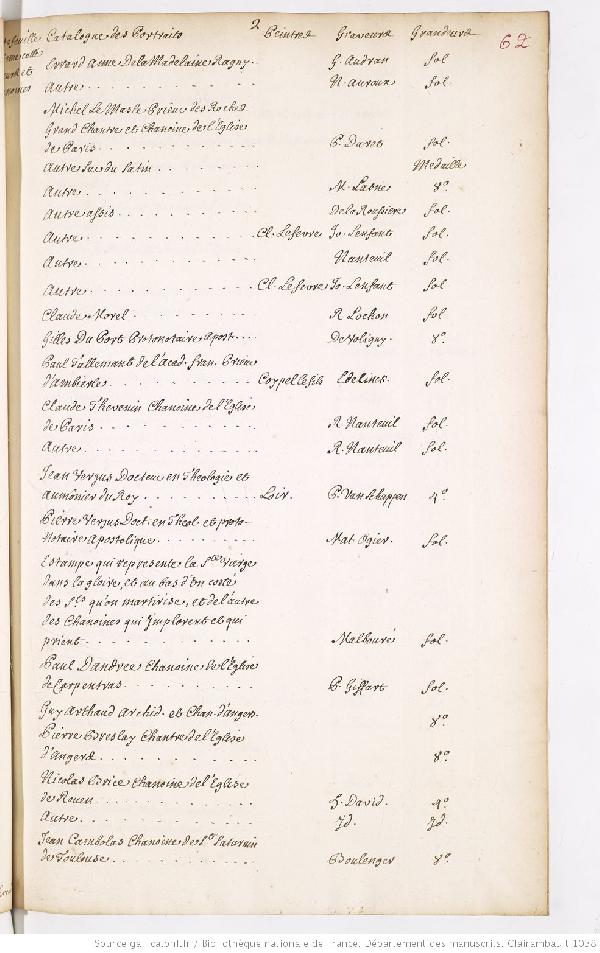 2
62
Catalogue des Portraits Peintres Graveurs Grandeurs
Erard Anne De la Madelaine Ragny. G. Audran fol.
Autre. N. Auroux fol.
Michel Le Masle Prieur des Roches
Grand Chantre et Chanoine de l'Eglise
de Paris. P. Daret fol.
Autre Sac du Latin Medaille
Autre. M. Lasne 8º
Autre assis. De la Roussiere fol.
Autre Cl. Lefevre Jo. Lenfant fol.
Autre. Nanteuil fol.
Autre Cl. Lefevre Jo. Lenfant fol.
Claude Morel. R Lochon fol.
Gilles Du Port Protonotaire Apost. De Voligny. 8º
Paul Tallemant de l'Acad. fran. Prieur
d'ambierle Coypel le fils Edelinck fol.
Claude Thevenin Chanoine de l'Eglise
de Paris R Nanteuil fol.
Autre. R. Nanteuil fol.
Jean Verjus Docteur en Theologie et
aumônier du Roy Loir. P. Van Schuppen 4º
Pierre Verjus Doct. en Theol. et proto-
Notaire Apostolique Mat. Ogier. fol.
Estampe qui represente la Ste Vierge
dans la gloire, et au bas d'un costé
des Sts qu'on martirise, et de l'autre
des Chanoines qui Implorent et qui
prient Malbouré fol.
Paul Dandree Chanoine de l'Eglise
de Carpentras P. Giffart fol.
Guy Arthaud Archid. et Chan. d'angers. 8º
Pierre Breslay Chantre de l'Eglise
d'Angers 8º
Nicolas Brice Chanoine de l'Eglise
de Rouen J. David. 4º
Autre Jd. Jd.
Jean Cambolas Chanoine de St Saturnin
de Toulouse Boulenger 8º
Source gallica.bnf.fr / Bibliothèque nationale de France. Département des manuscrits. Clairambault 1038